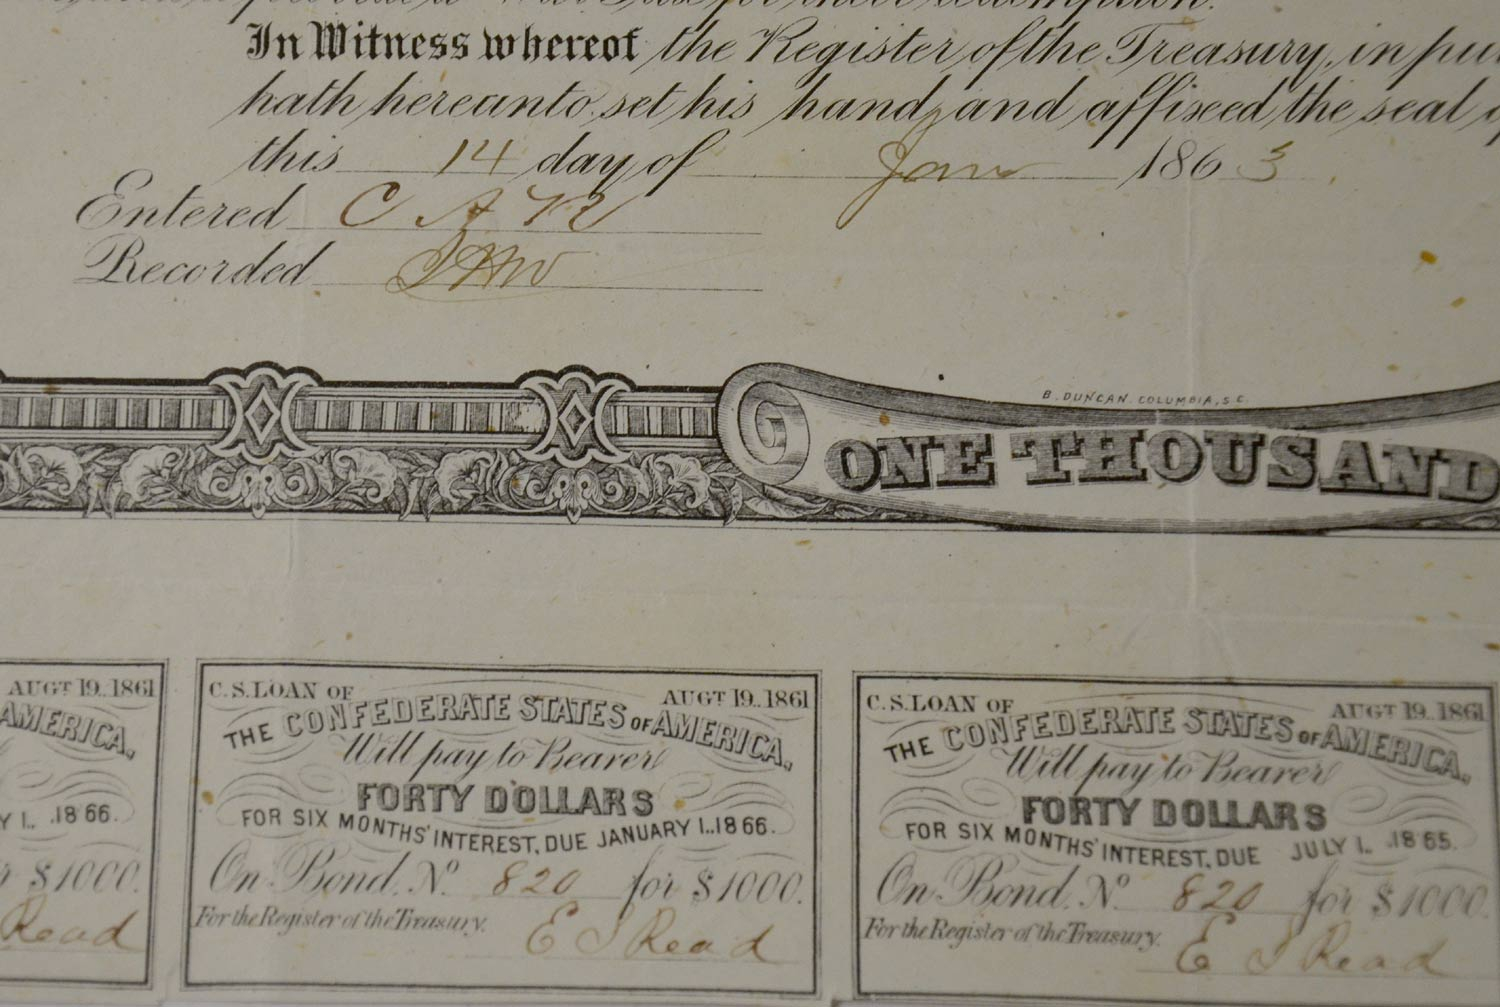 for their redemption.
In Witness whereof the Register of the Treasury, in
hath hereunto set his hand and affixed the seal
this 14 day of Jany 1863.
Entered C A R
Recorded
B. DUNCAN. COLUMBIA, S.C.
ONE THOUSAND
AUGT 19.. 1861
AMERICA,
1.. 1866.
$1000.
Read
C.S. LOAN OF AUGT 19.. 1861
THE CONFEDERATE STATES OF AMERICA,
Will pay to Bearer
FORTY DOLLARS
FOR SIX MONTHS' INTEREST, DUE JANUARY 1.. 1866.
On Bond. No 820 for $1000.
For the Register of the Treasury. E S Read
C.S. LOAN OF AUGT 19.. 1861
THE CONFEDERATE STATES OF AMERICA,
Will pay to Bearer
FORTY DOLLARS
FOR SIX MONTHS' INTEREST, DUE JULY 1.. 1865.
On Bond. No 820 for $1000.
For the Register of the Treasury. E S Read